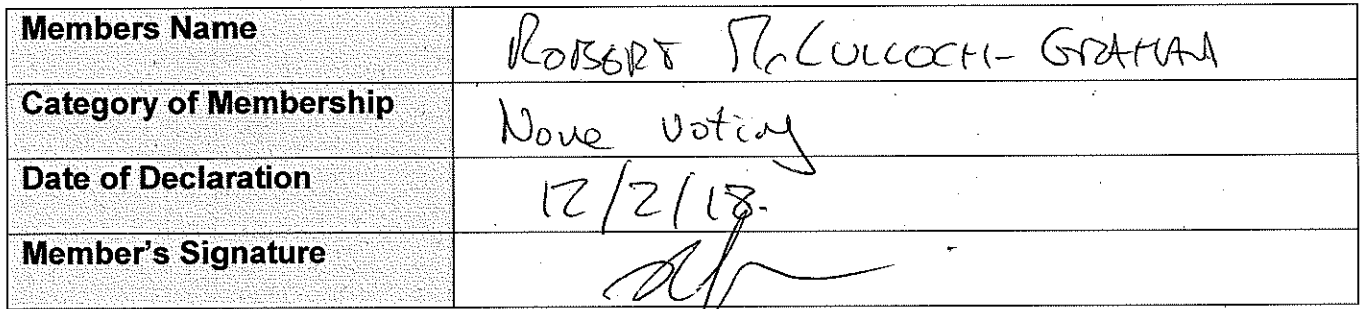 Members Name ROBERT McCULLOCH-GRAHAM
Category of Membership None voting
Date of Declaration 12/2/18.
Member's Signature